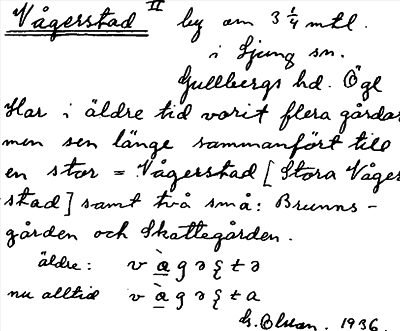 Vågerstad II by om 3 1/4 mtl.
i Ljung sn.
Gullbergs hd. Ögl
Har i äldre tid varit flera gårdar
men sen länge sammanfört till
en stor = Vågerstad [Stora Våger
stad] samt två små: Brunns-
gården och Skattegården.
äldre: v æ̀ g ə ʂ t ə
nu alltid v æ̀ g ə ʂ t a
G. Olson. 1936.